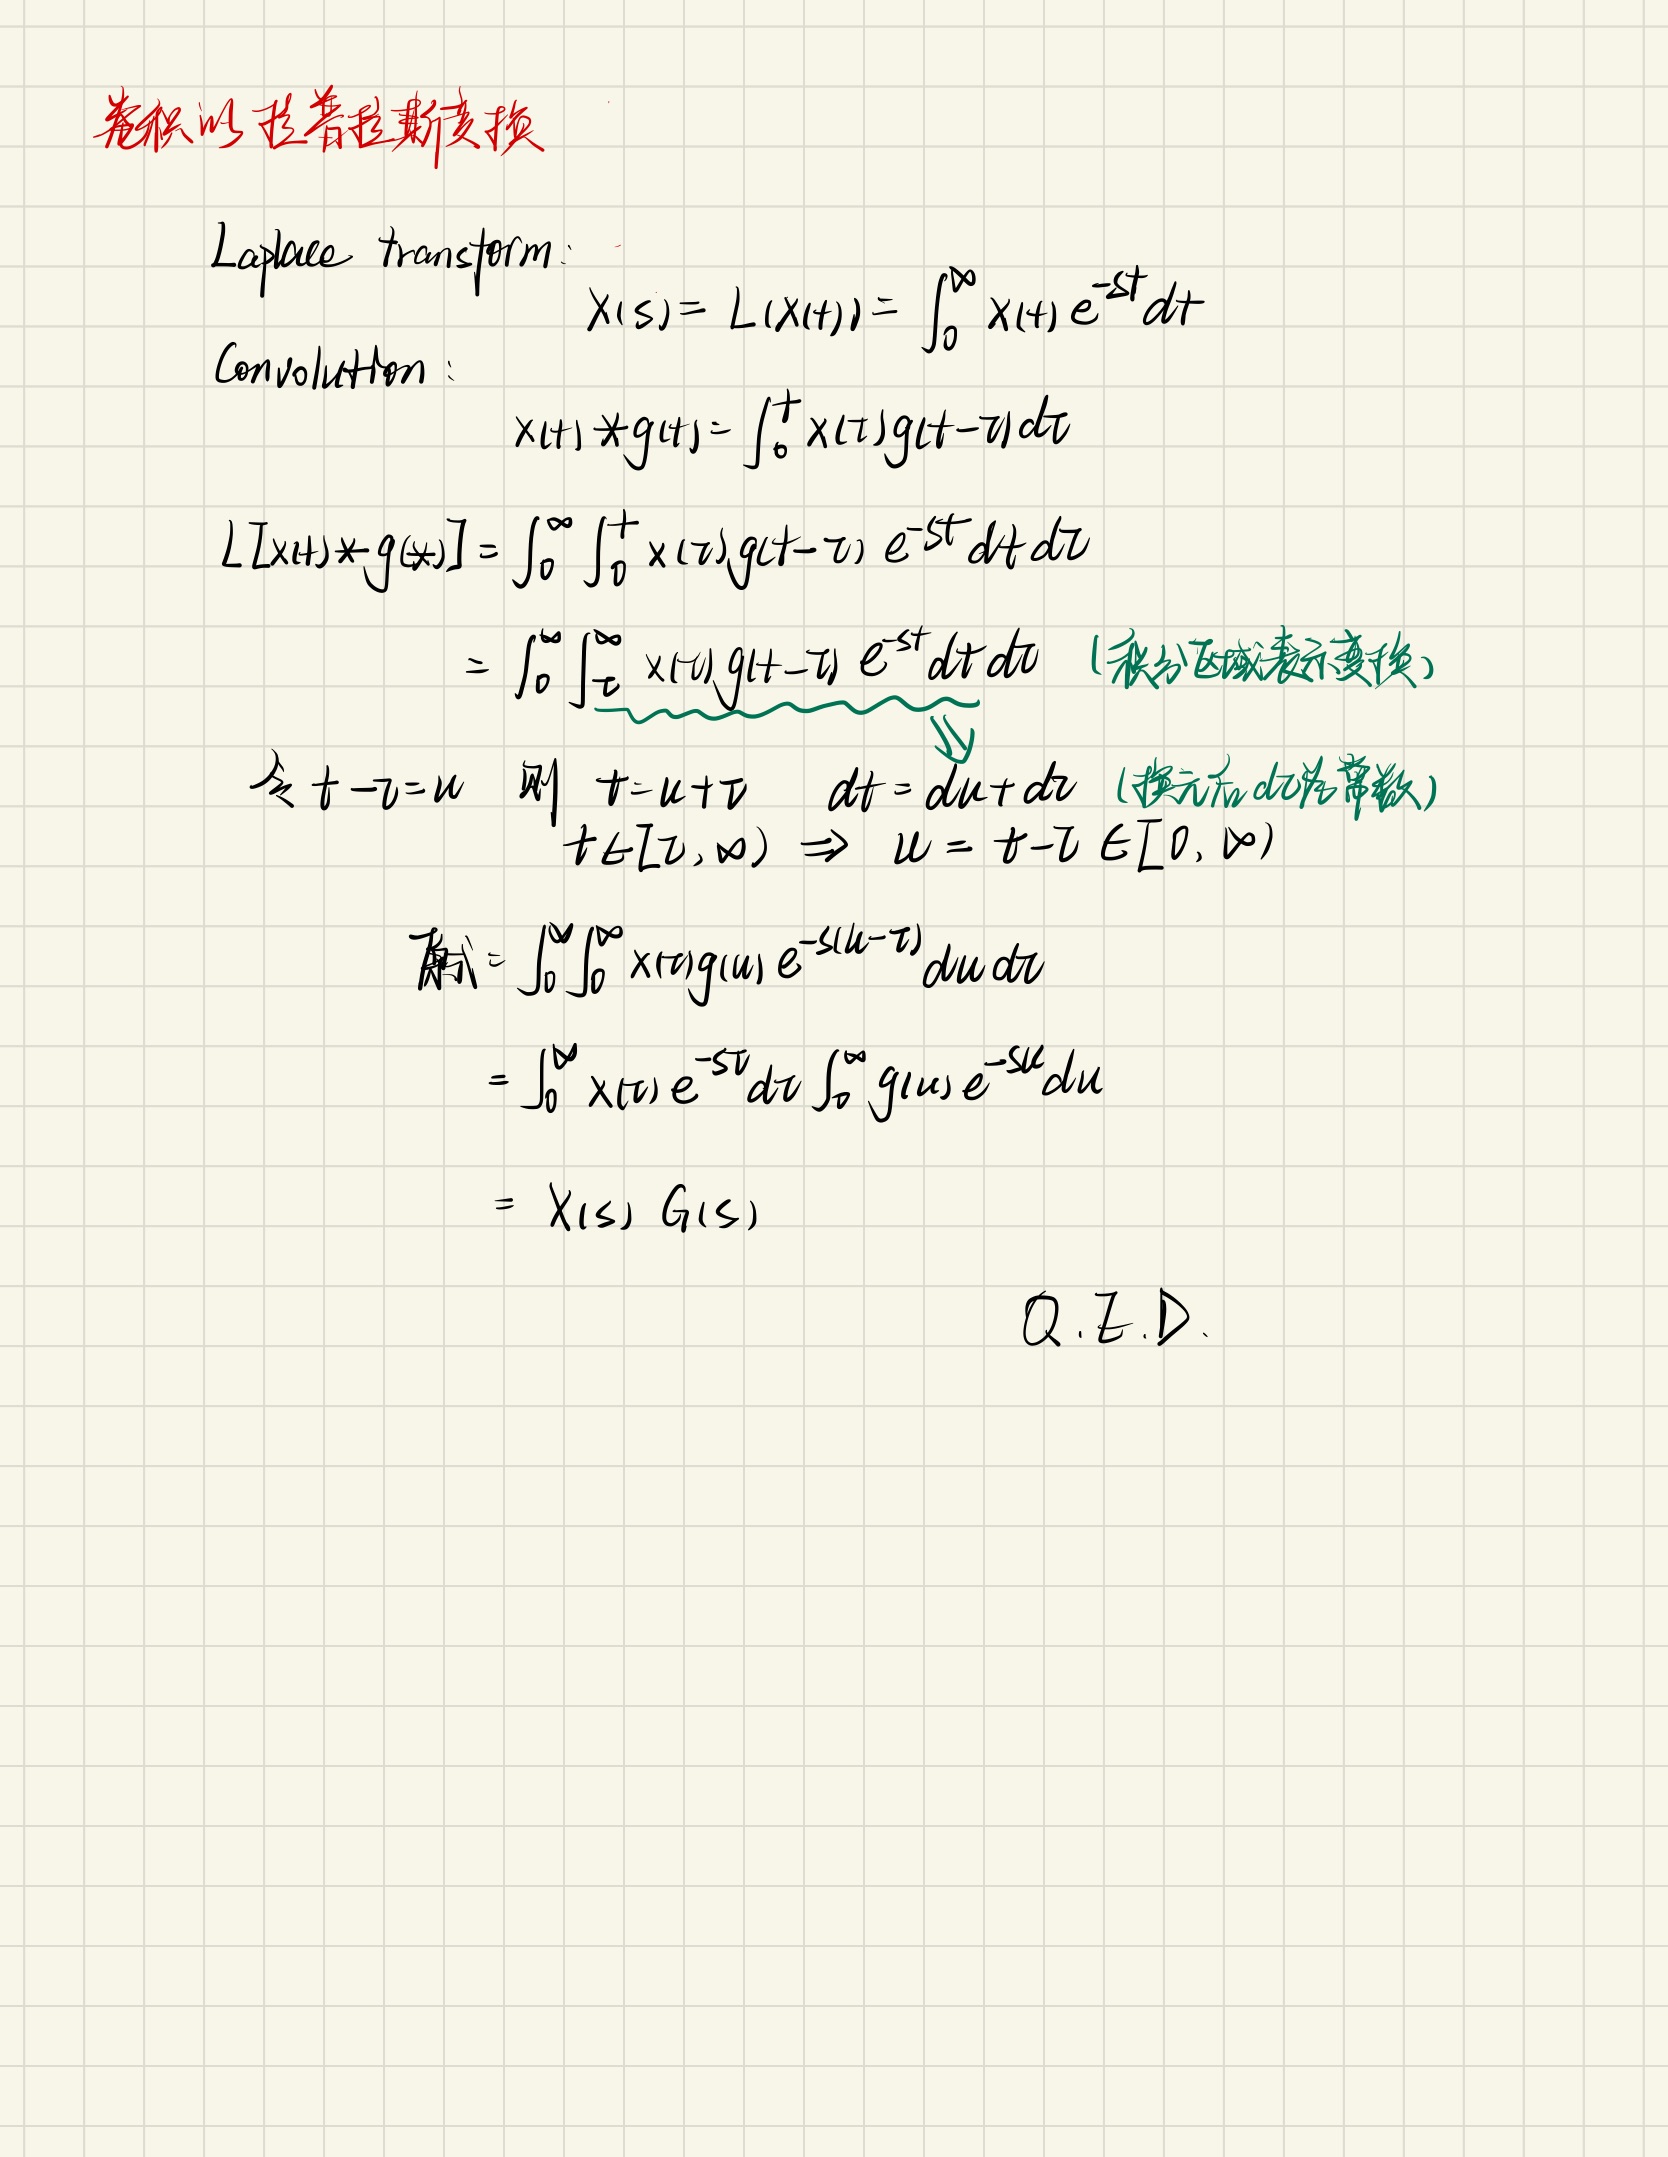 卷积的拉普拉斯变换
Laplace transform:
X(s) = L(x(t)) = ∫₀^∞ x(t) e^{-st} dt
Convolution:
x(t) * g(t) = ∫₀^t x(τ) g(t-τ) dτ
L[x(t) * g(*)] = ∫₀^∞ ∫₀^t x(τ) g(t-τ) e^{-st} dt dτ
= ∫₀^∞ ∫_τ^∞ x(τ) g(t-τ) e^{-st} dt dτ (积分区域表示变换)
令 t-τ=u 则 t=u+τ dt = du+dτ (换元后dτ为常数)
t∈[τ, ∞) ⇒ u = t-τ ∈[0, ∞)
原式 = ∫₀^∞ ∫₀^∞ x(τ) g(u) e^{-s(u-τ)} du dτ
= ∫₀^∞ x(τ) e^{-sτ} dτ ∫₀^∞ g(u) e^{-su} du
= X(s) G(s)
Q.E.D.